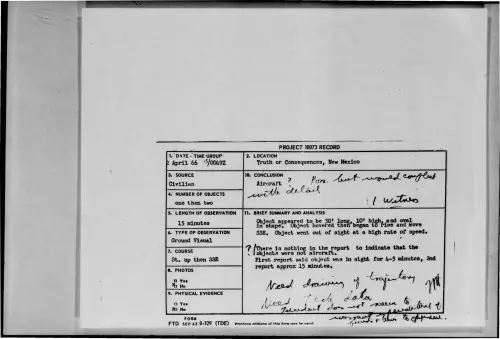 PROJECT 10073 RECORD
1. DATE - TIME GROUP
2 April 66 /0049Z
2. LOCATION
Truth or Consequences, New Mexico
3. SOURCE
Civilian
10. CONCLUSION
Aircraft ? Poss. but would conflict
with detail
1 Witness
4. NUMBER OF OBJECTS
one then two
5. LENGTH OF OBSERVATION
15 minutes
11. BRIEF SUMMARY AND ANALYSIS
Object appeared to be 30' long, 10' high, and oval
in shape. Object hovered then began to rise and move
SSE. Object went out of sight at a high rate of speed.
6. TYPE OF OBSERVATION
Ground Visual
?! There is nothing in the report to indicate that the
objects were not aircraft.
First report said object was in sight for 4-5 minutes, 2nd
report approx 15 minutes.
7. COURSE
St. up then SSE
8. PHOTOS
□ Yes
☒ No
Need drawing of trajectory
Need tech data
9. PHYSICAL EVIDENCE
□ Yes
☒ No
FORM
FTD SEP 63 0-329 (TDE) Previous editions of this form may be used.